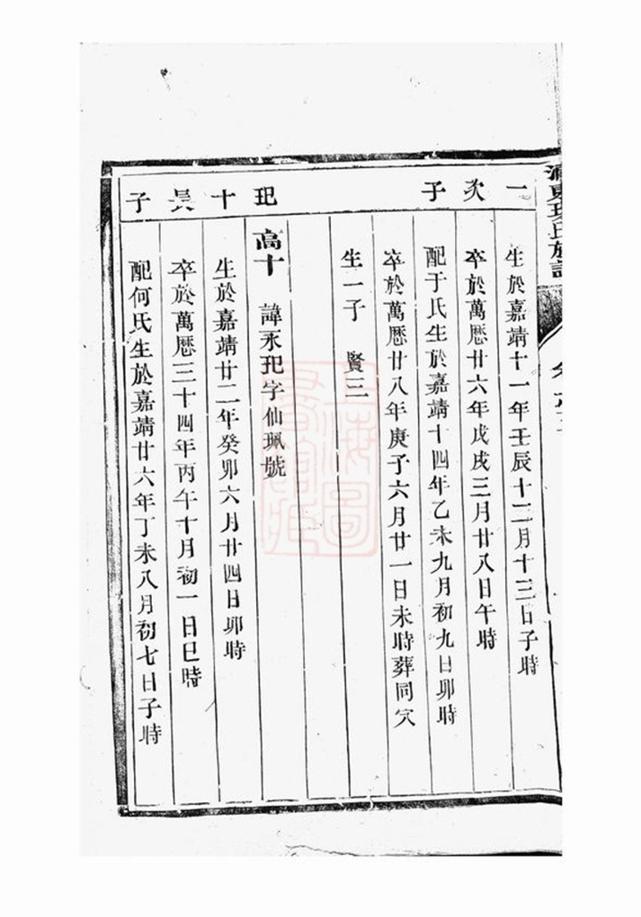 氏族譜
一次子
生於嘉靖十一年壬辰十二月十三日子時
卒於萬曆廿六年戊戌三月廿八日午時
配于氏生於嘉靖十四年乙未九月初九日卯時
卒於萬曆廿八年庚子六月廿一日未時葬同穴
生一子 賢三
玘十長子
高十 諱永玘字仙珮號
生於嘉靖廿二年癸卯六月廿四日卯時
卒於萬曆三十四年丙午十月初一日巳時
配何氏生於嘉靖廿六年丁未八月初七日子時
上海圖書館藏